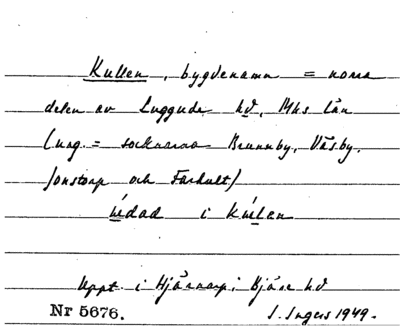 Kullen, bygdenamn = norra
delen av Luggude hd, Mhs län
(ung. = socknarna Brunnby, Väsby,
Jonstorp och Farhult)
i Kullen
Uppt. i Hjärnarp, Bjäre hd
Nr 5676. S. Ingers 1949.